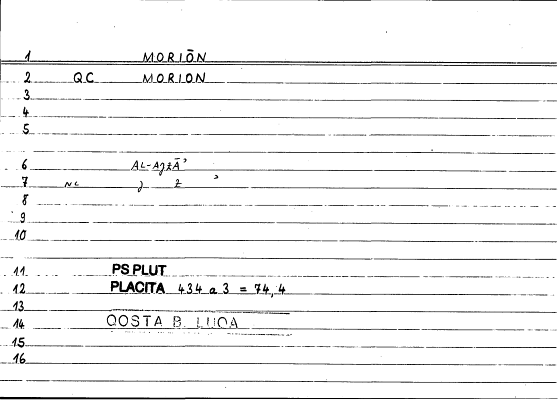 1 MORIŌN
2 QC MORION
3
4
5
6 AL-AJZĀʾ
7 NL J Z ʾ
8
9
10
11 PS PLUT
12 PLACITA 434 a 3 = 74,4
13
14 QOSTA B. LUQA
15
16